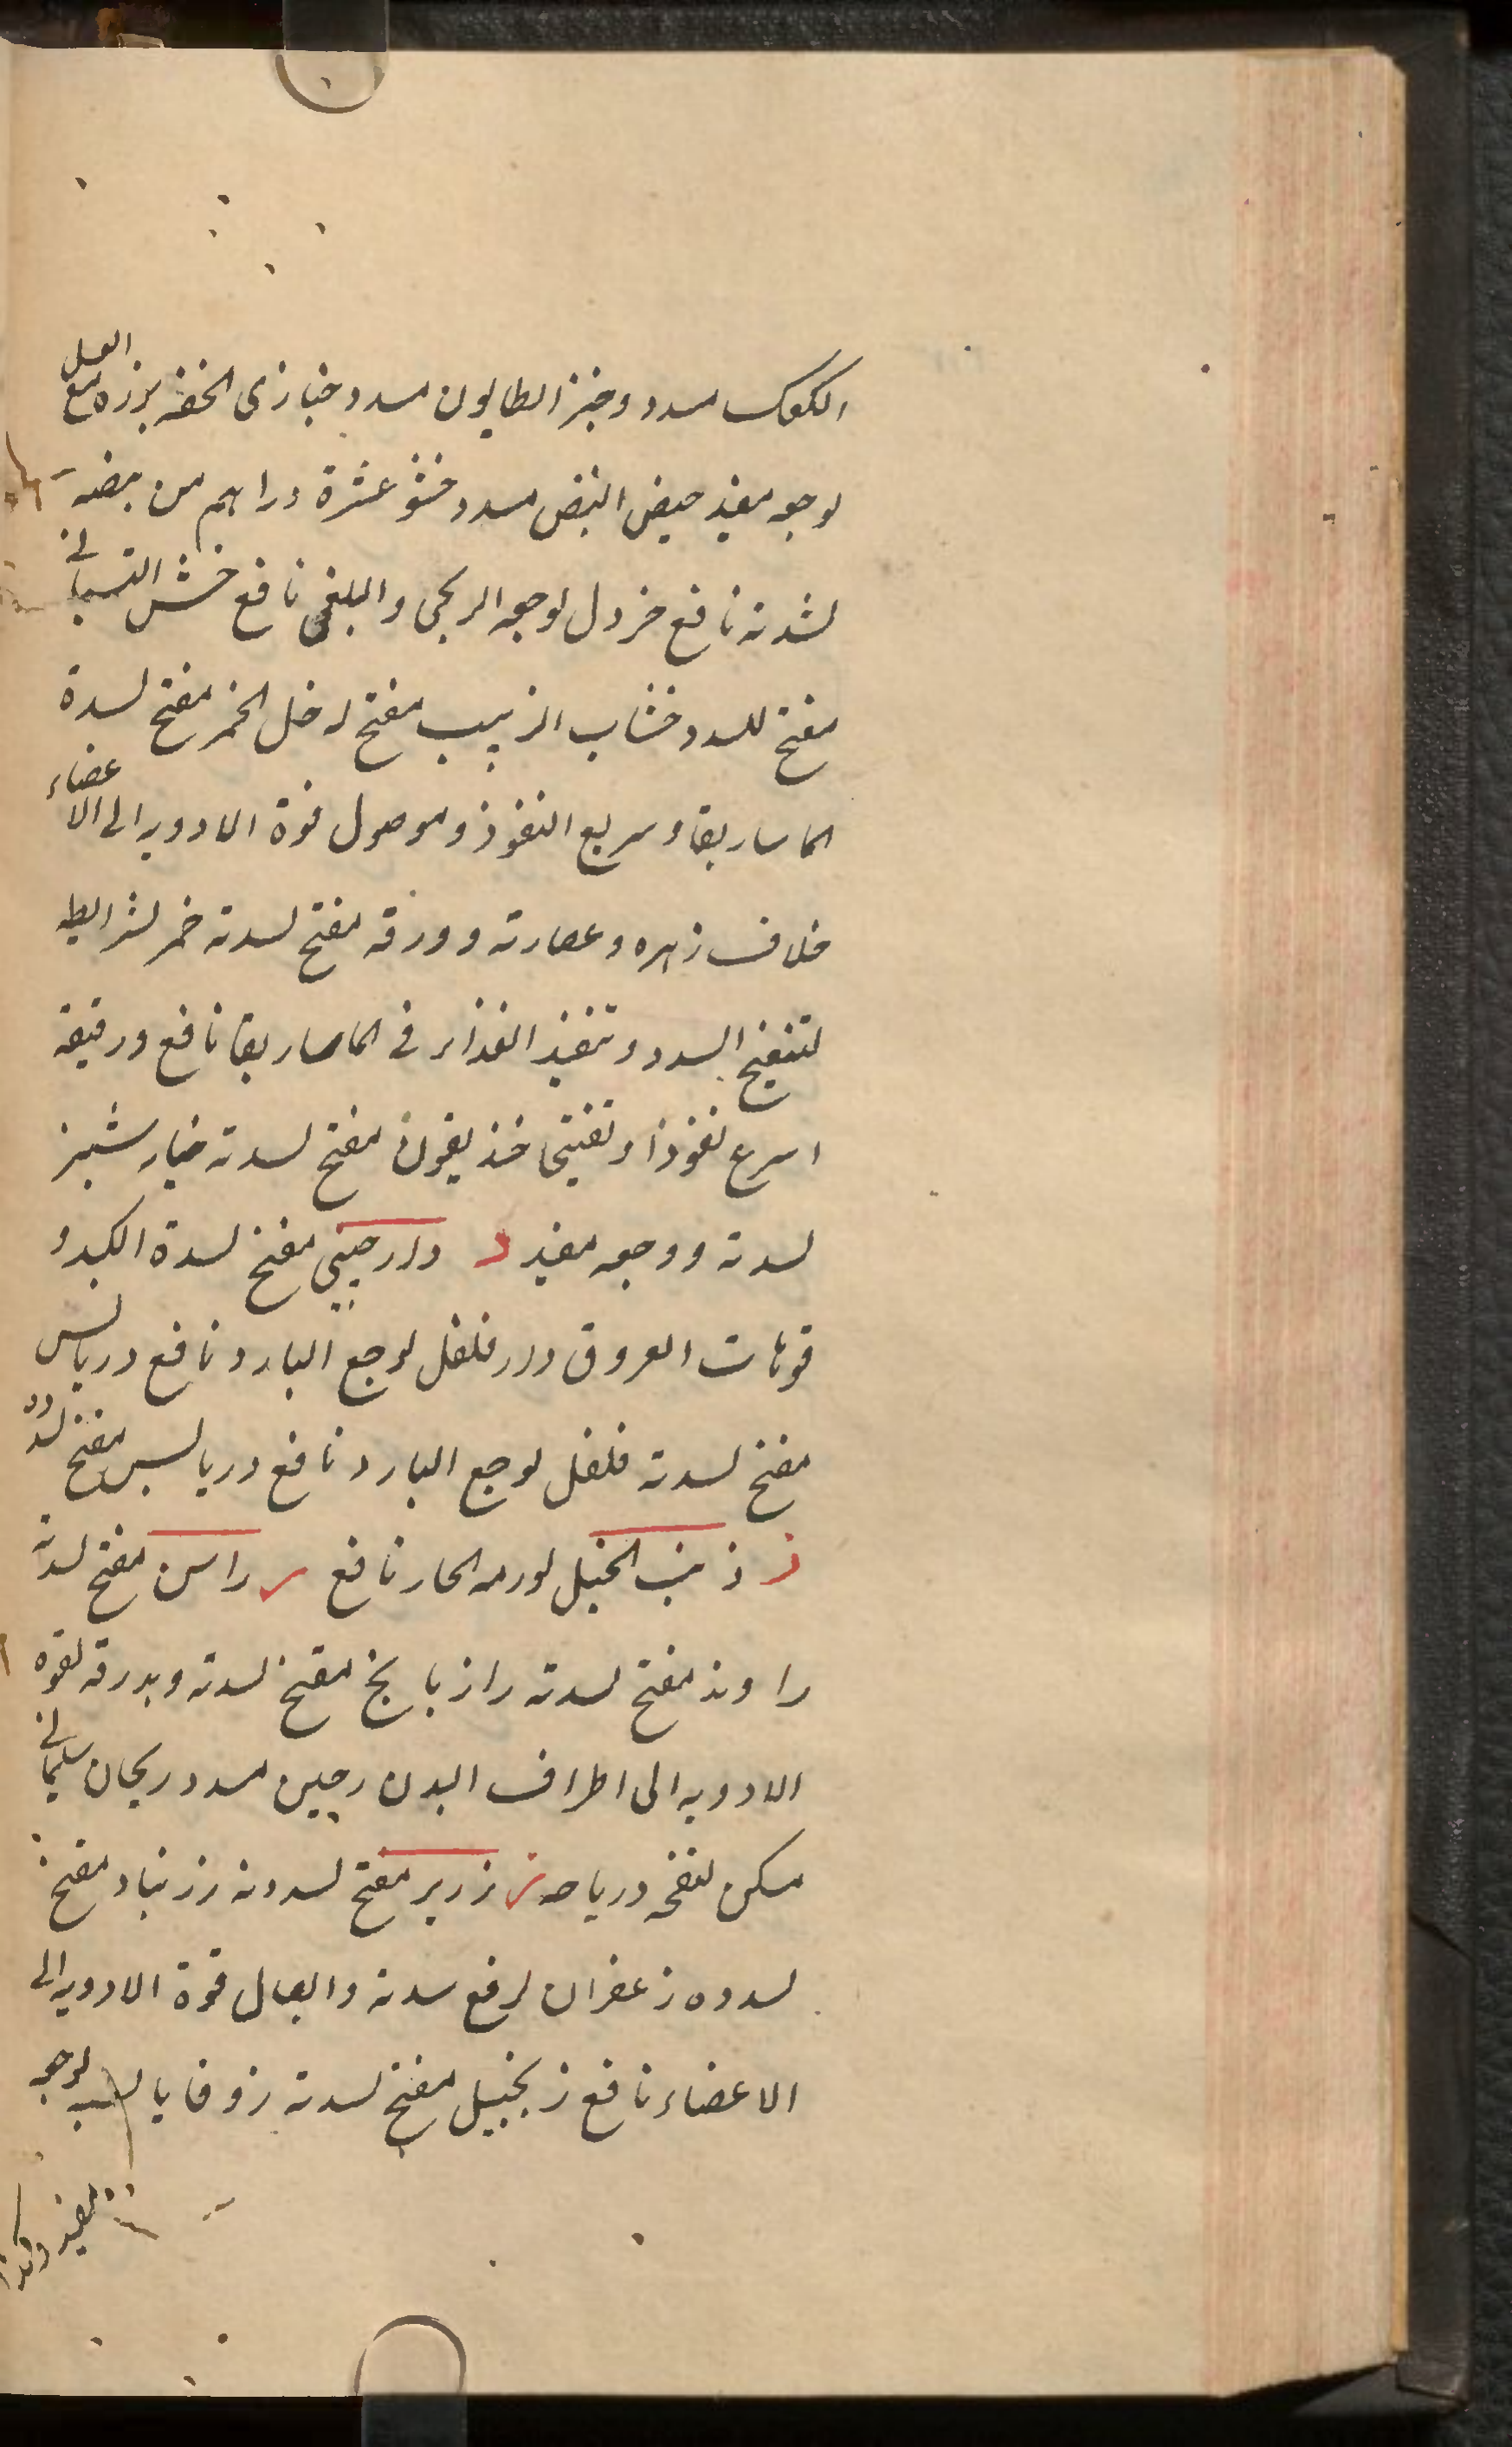 الكعك مسدد وخبز الطابون مسدد خبازى الخفه بزره مع العسل
لوجعه مفيد حيض البيض مسدد خنثى عشرة دراهم من
لشدته نافع خردل لوجعه الريحى والبلغمى نافع خشن
مفتح للسدد خشاب الزبيب مفتح له خل الخمر مفتح لسدة
الماساريقا وسريع النفوذ وموصول قوة الادويه الى الاعضاء
خلاف زهره وعصارته وورقه مفتح لسدته خمر لشرايطه
لتفتيح السدد وتنفيذ الغذاء فى الماساريقا نافع ورقيقه
اسرع نفوذا وتفتيحا خنديقون مفتح لسدته خيار شنبر
لسدته ووجعه مفيد د دارجينى مفتح لسدة الكبد و
فوهات العروق دار فلفل لوجع البارد نافع درياس
مفتح لسدته فلفل لوجع البارد نافع درياس مفتح لسدده
ذ ذنب الخيل لورمه الحار نافع ر راسن مفتح لسدته
راوند مفتح لسدته رازيانج مفتح لسدته وبدرقه لقوة
الادويه الى اطراف البدن رجين مسدد ريحان سليمانى
مسكن لنفخه ورياحه ز زرير مفتح لسدده زرنباد مفتح
لسدده زعفران لرفع سدته وايصال قوة الادويه الى
الاعضاء نافع زنجبيل مفتح لسدته زوفا يابس لوجعه
مفيد